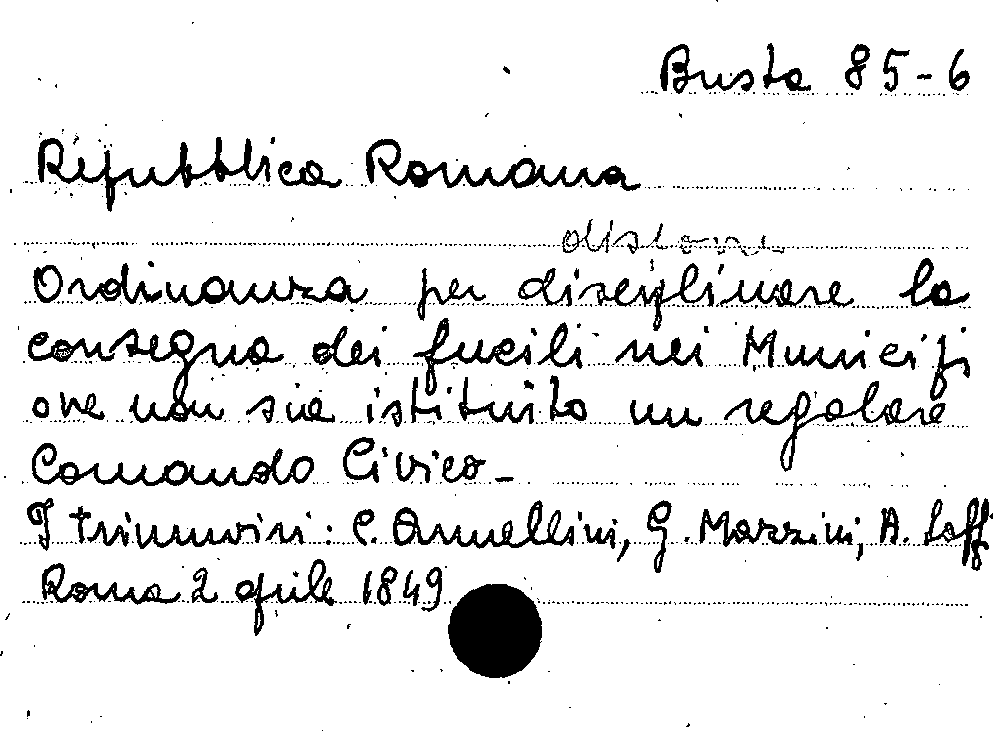 Busta 85-6
Repubblica Romana
disporre
Ordinanza per disciplinare la
consegna dei fucili nei Municipi
ove non sia istituito un regolare
Comando Civico -
I triumviri: C. Armellini, G. Mazzini, A. Saffi
Roma 2 aprile 1849